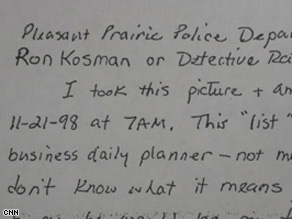 Pleasant Prairie Police Depa
Ron Kosman or Detective
I took this picture + a
11-21-98 at 7AM. This "list"
business daily planner — not m
don't know what it means
CNN